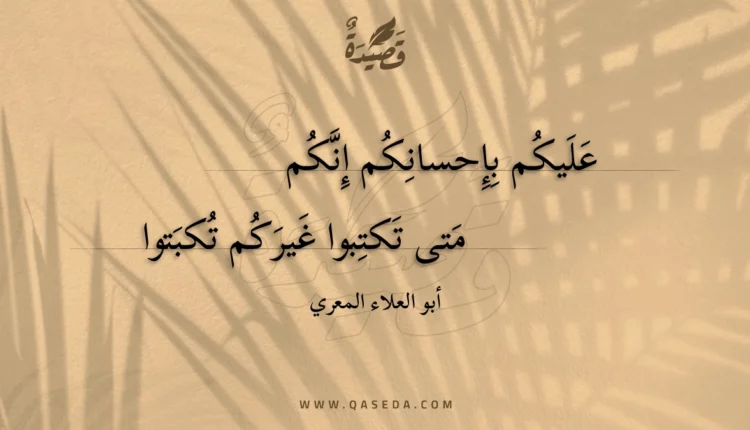 قَصِيدَةٌ
عَلَيكُم بِإِحسانِكُم إِنَّكُم
مَتى تَكتِبوا غَيرَكُم تُكبَتوا
أبو العلاء المعري
WWW.QASEDA.COM